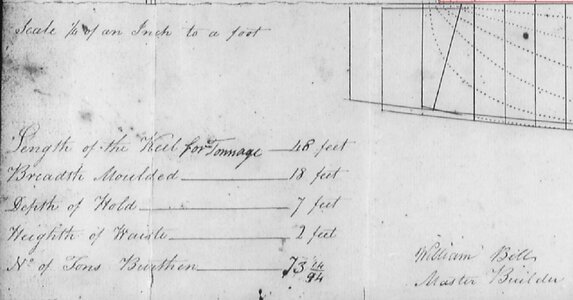 Scale ¼ of an Inch to a foot
Length of the Keel for Tonnage 48 feet
Breadth Moulded 18 feet
Depth of Hold 7 feet
Heighth of Waiste 2 feet
No of Tons Burthen 73
94
William Bell
Master Builder